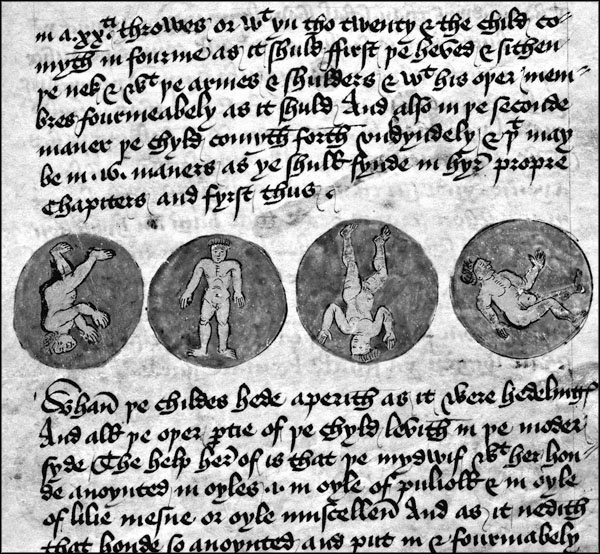 in a .xx.ti throwes or wt yn tho twenty & the child co=
myth in fourme as it shuld ffirst þe heved & sithen
þe nek & wt þe armes & shulders & wt his oþer mem=
bres fourmeabely as it shuld And also in þe seconde
maner þe chyld comyth forth vnkyndely & þt may
be in .xv. maners as ye shull fynde in hyr propre
Chapiters and fyrst thus
Whan þe childes hede aperith as it were hedeling
And all þe oþer ptie of þe chyld levith in þe moder
syde The help her of is that þe mydwif wt her hon=
de anoynted in oyles .i. in oyle of pulioll & in oyle
of lilie or oyle muscellen And as it nedith
that honde so anoynted and put in & fourmably